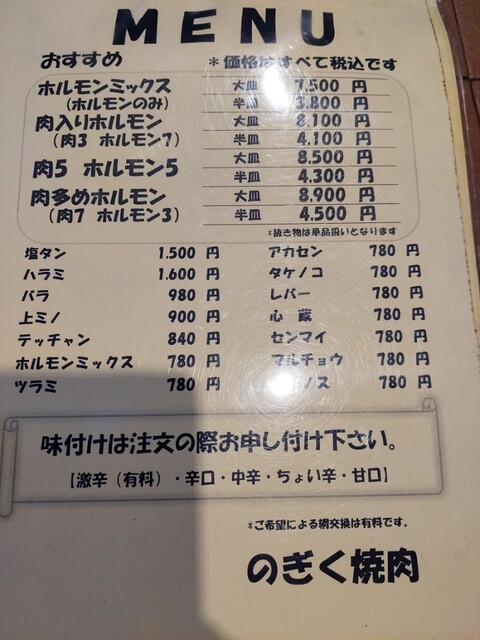 MENU
おすすめ
*価格はすべて税込です
ホルモンミックス 大皿 7,500 円
(ホルモンのみ) 半皿 3,800 円
肉入りホルモン 大皿 8,100 円
(肉3 ホルモン7) 半皿 4,100 円
肉5 ホルモン5 大皿 8,500 円
半皿 4,300 円
肉多めホルモン 大皿 8,900 円
(肉7 ホルモン3) 半皿 4,500 円
*抜き物は単品扱いとなります
塩タン 1,500 円 アカセン 780 円
ハラミ 1,600 円 タケノコ 780 円
バラ 980 円 レバー 780 円
上ミノ 900 円 心臓 780 円
テッチャン 840 円 センマイ 780 円
ホルモンミックス 780 円 マルチョウ 780 円
ツラミ 780 円 ノス 780 円
味付けは注文の際お申し付け下さい。
【激辛(有料)・辛口・中辛・ちょい辛・甘口】
*ご希望による網交換は有料です。
のぎく焼肉